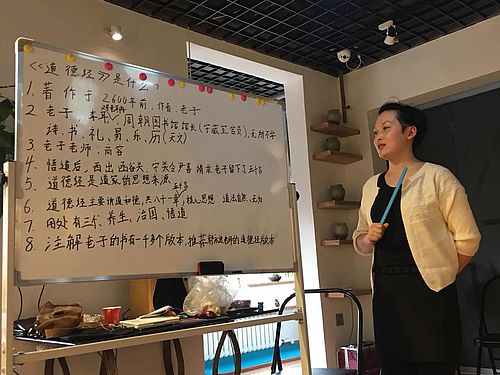 《道德经》是什么?
1. 著作于2600年前, 作者: 老子
2. 老子、李耳、周朝图书馆馆长(守藏室官员), 无所不学
读书、礼、易、乐、历(天文)
3. 老子老师: 商容
4. 悟道后, 西出函谷关, 守关令尹喜 请求老子留下了五千言
5. 道德经是道家的思想来源
6. 道德经主要讲道和德, 共八十一章 核心思想 道法自然, 无为
7. 用处有三个、养生、治国、悟道
8. 注解老子的书有一千多个版本, 推荐 的道德经版本